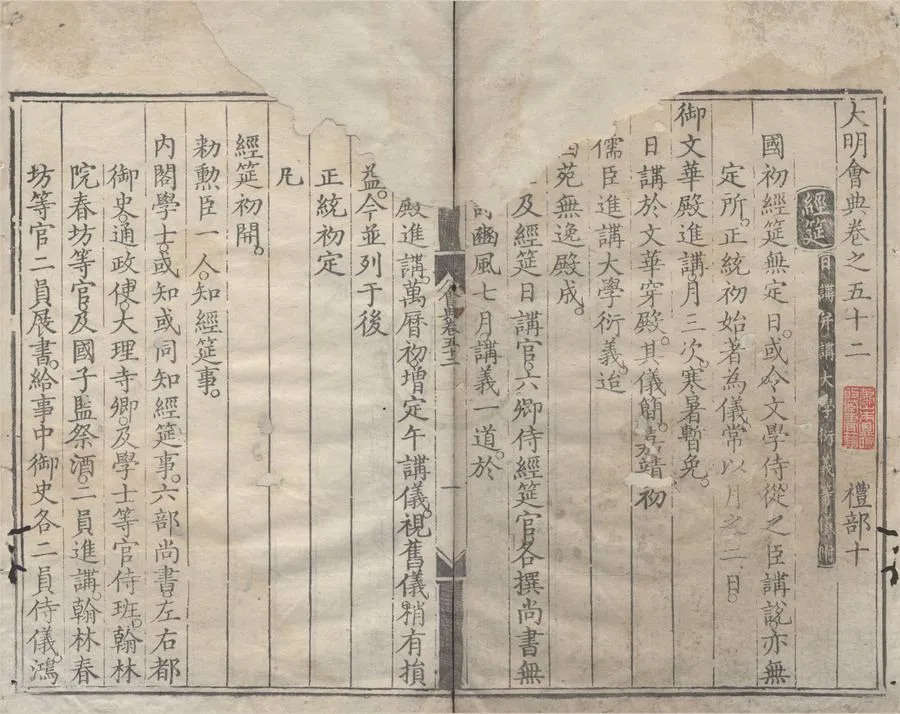 大明會典卷之五十二 禮部十
經筵 日講并講大學衍義等儀附
國初經筵無定日。或令文學侍從之臣講說亦無
定所。正統初始著為儀。常以月之二日。
御文華殿進講。月三次。寒暑暫免。
日講於文華穿殿。其儀簡。嘉靖初
儒臣進講大學衍義。迨
苑無逸殿成。
及經筵日講官。六卿侍經筵官各撰尚書無
豳風七月講義一道於
會典卷五十二 一
殿進講。萬曆初增定午講儀。視舊儀稍有損
益。今並列于後
正統初定
凡
經筵初開。
勑勳臣一人。知經筵事。
內閣學士。或知或同知經筵事。六部尚書。左右都
御史。通政使。大理寺卿。及學士等官侍班。翰林
院春坊等官及國子監祭酒。二員進講。翰林春
坊等官二員展書。給事中御史各二員侍儀。鴻